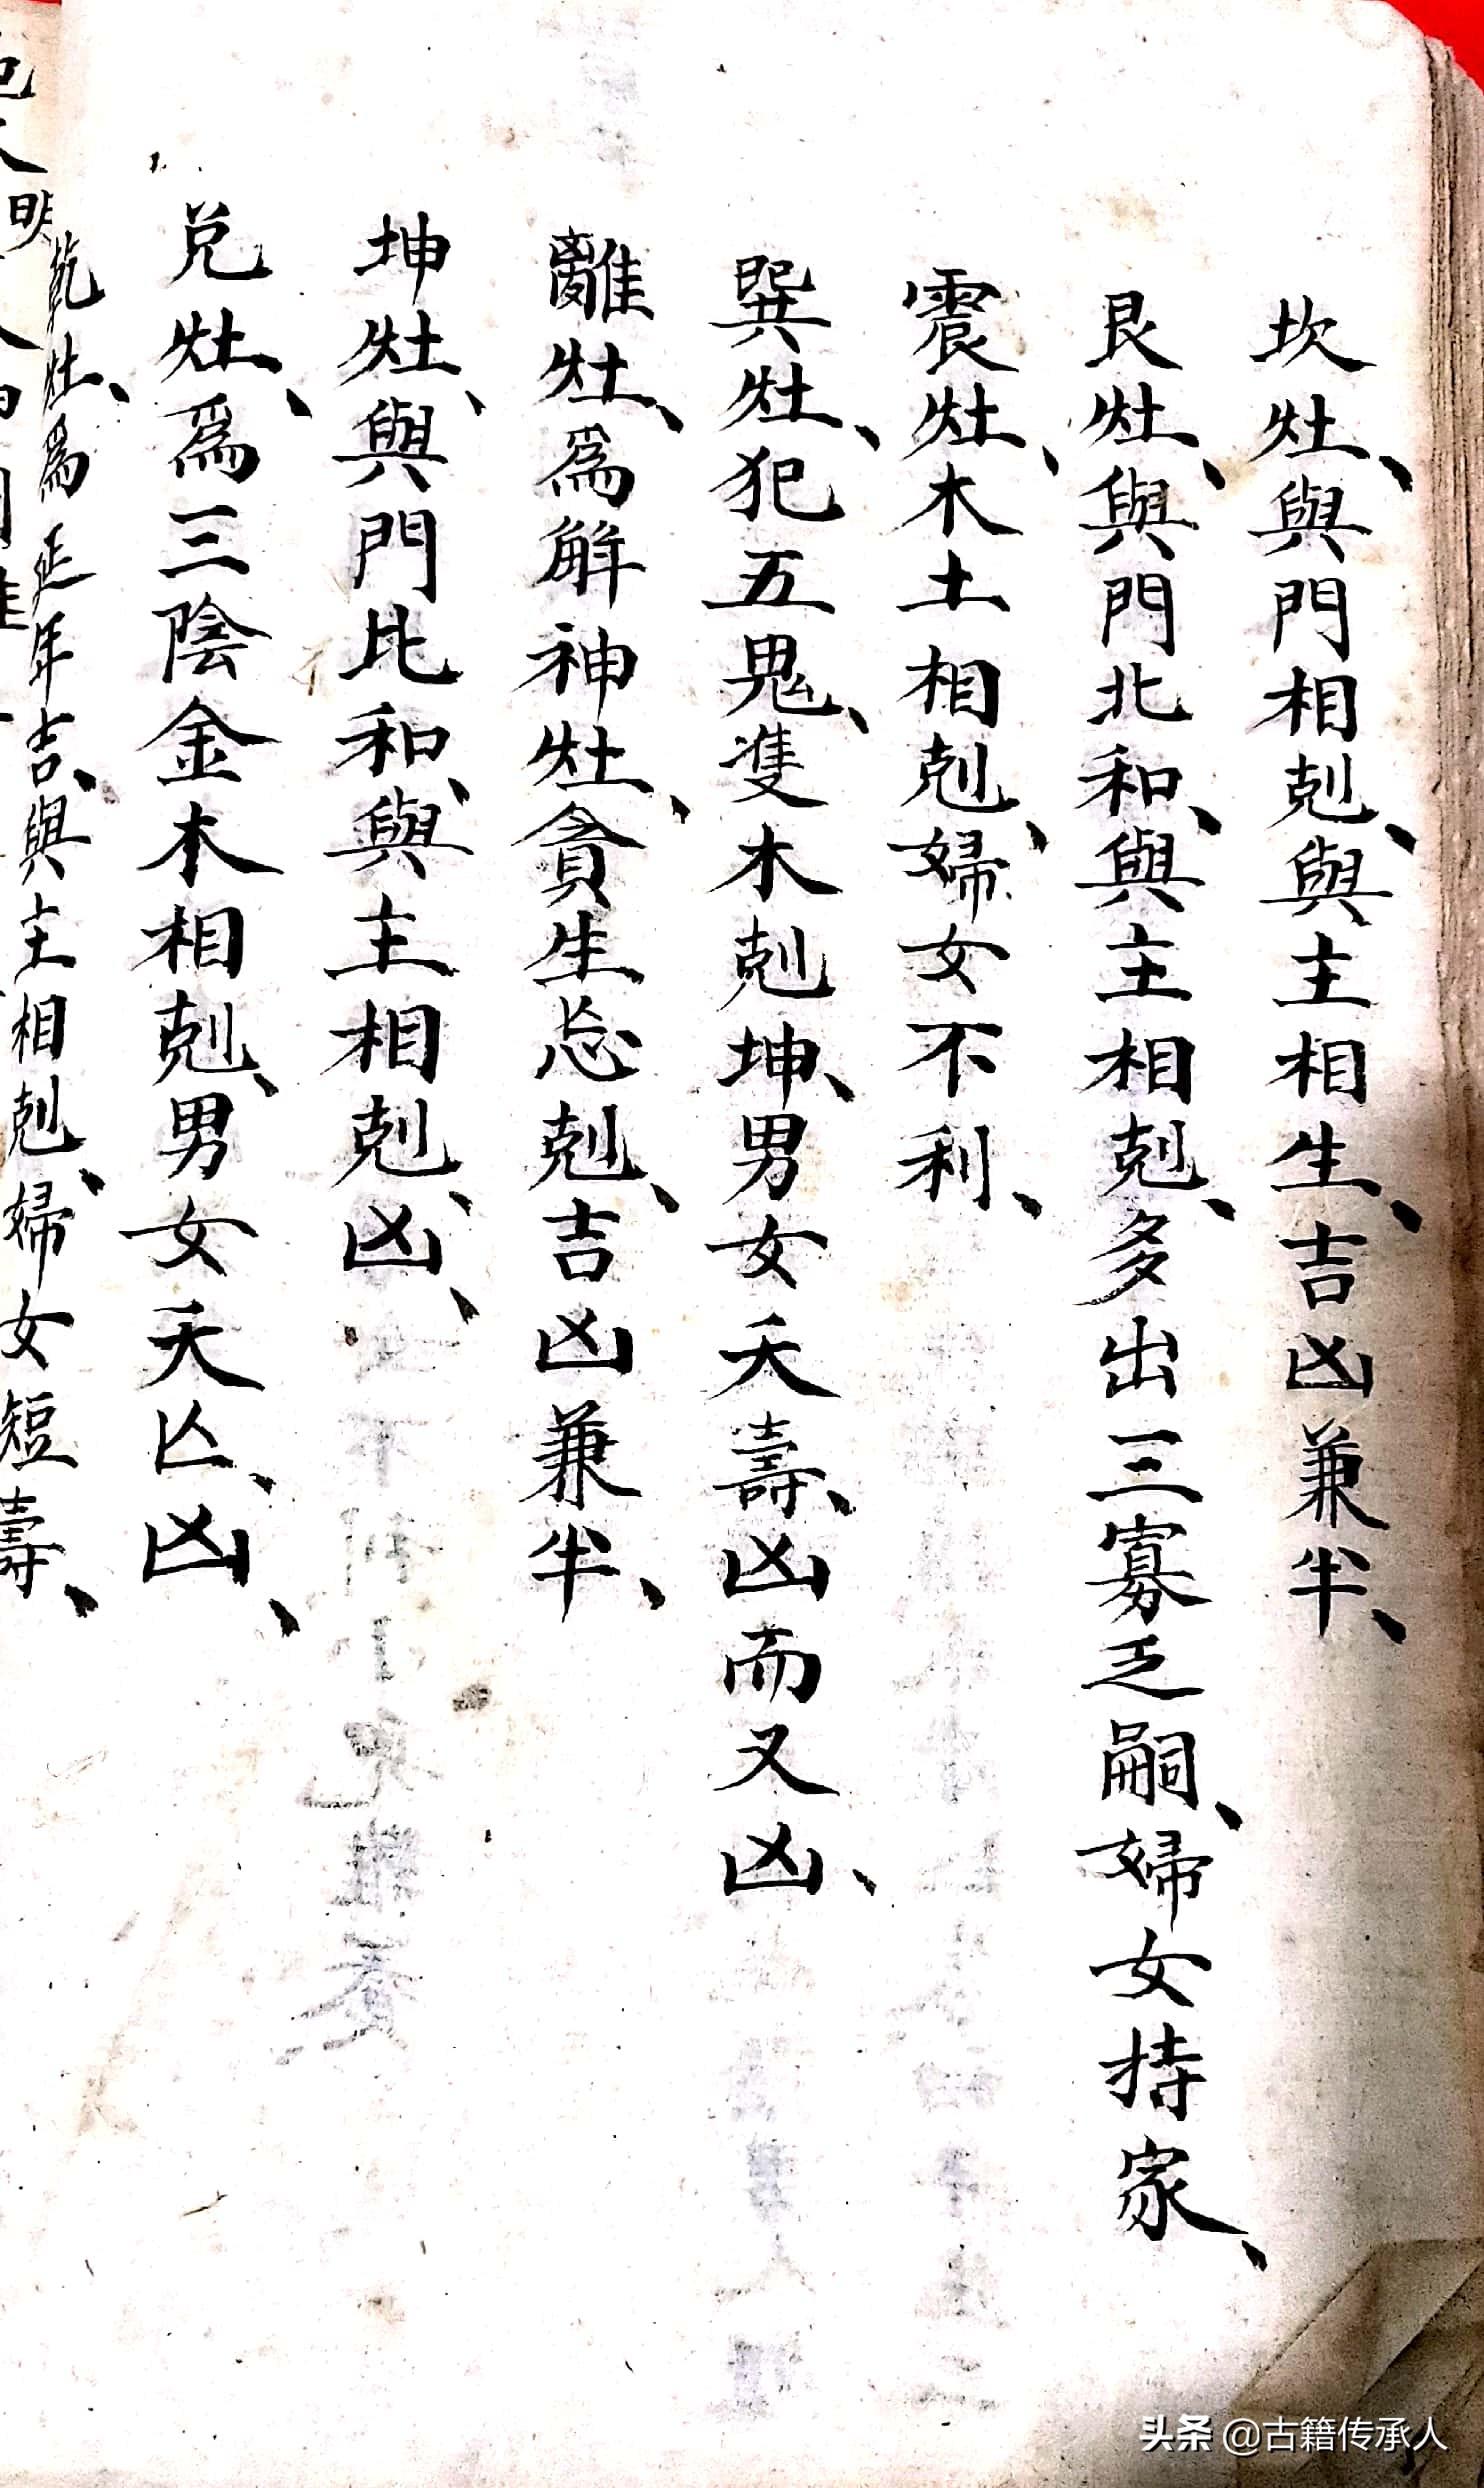 坎灶、與門相剋、與主相生、吉凶兼半、
艮灶、與門北和、與主相剋、多出三寡乏嗣、婦女持家、
震灶、木土相剋、婦女不利、
巽灶、犯五鬼、隻木剋坤、男女夭壽、凶而又凶、
離灶、爲解神灶、貪生忘剋、吉凶兼半、
坤灶、與門比和、與主相剋、凶、
兑灶、爲三陰金木相剋、男女夭亡、凶、
乾灶、爲延年吉、與主相剋、婦女短壽、
头条 @古籍传承人